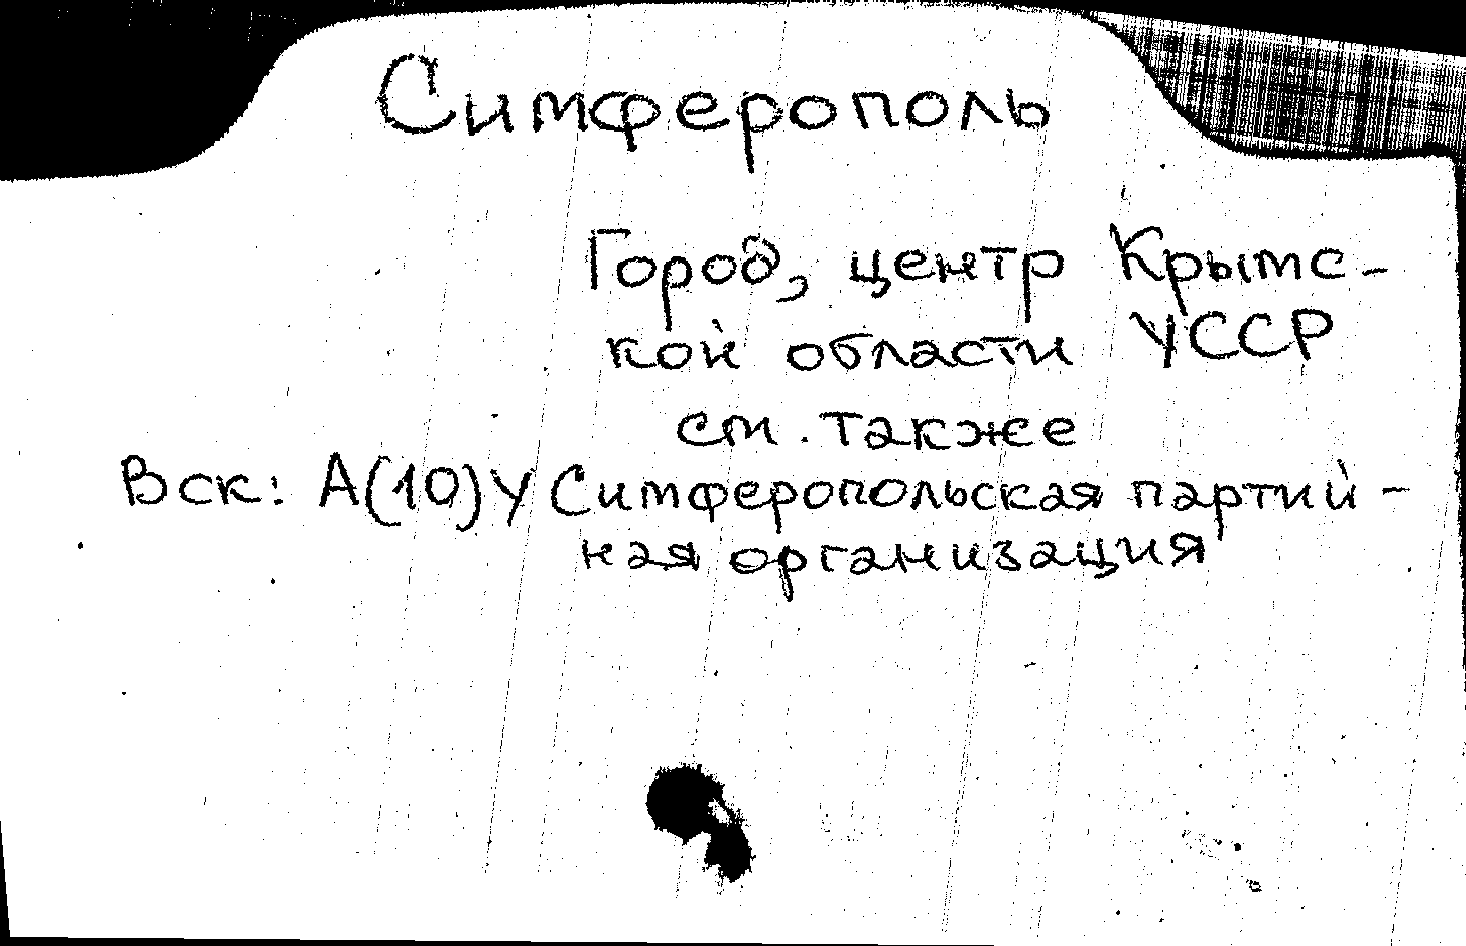 Симферополь
Город, центр Крымс-
кой области УССР
см. также
Вск: А(10)У Симферопольская партий-
ная организация